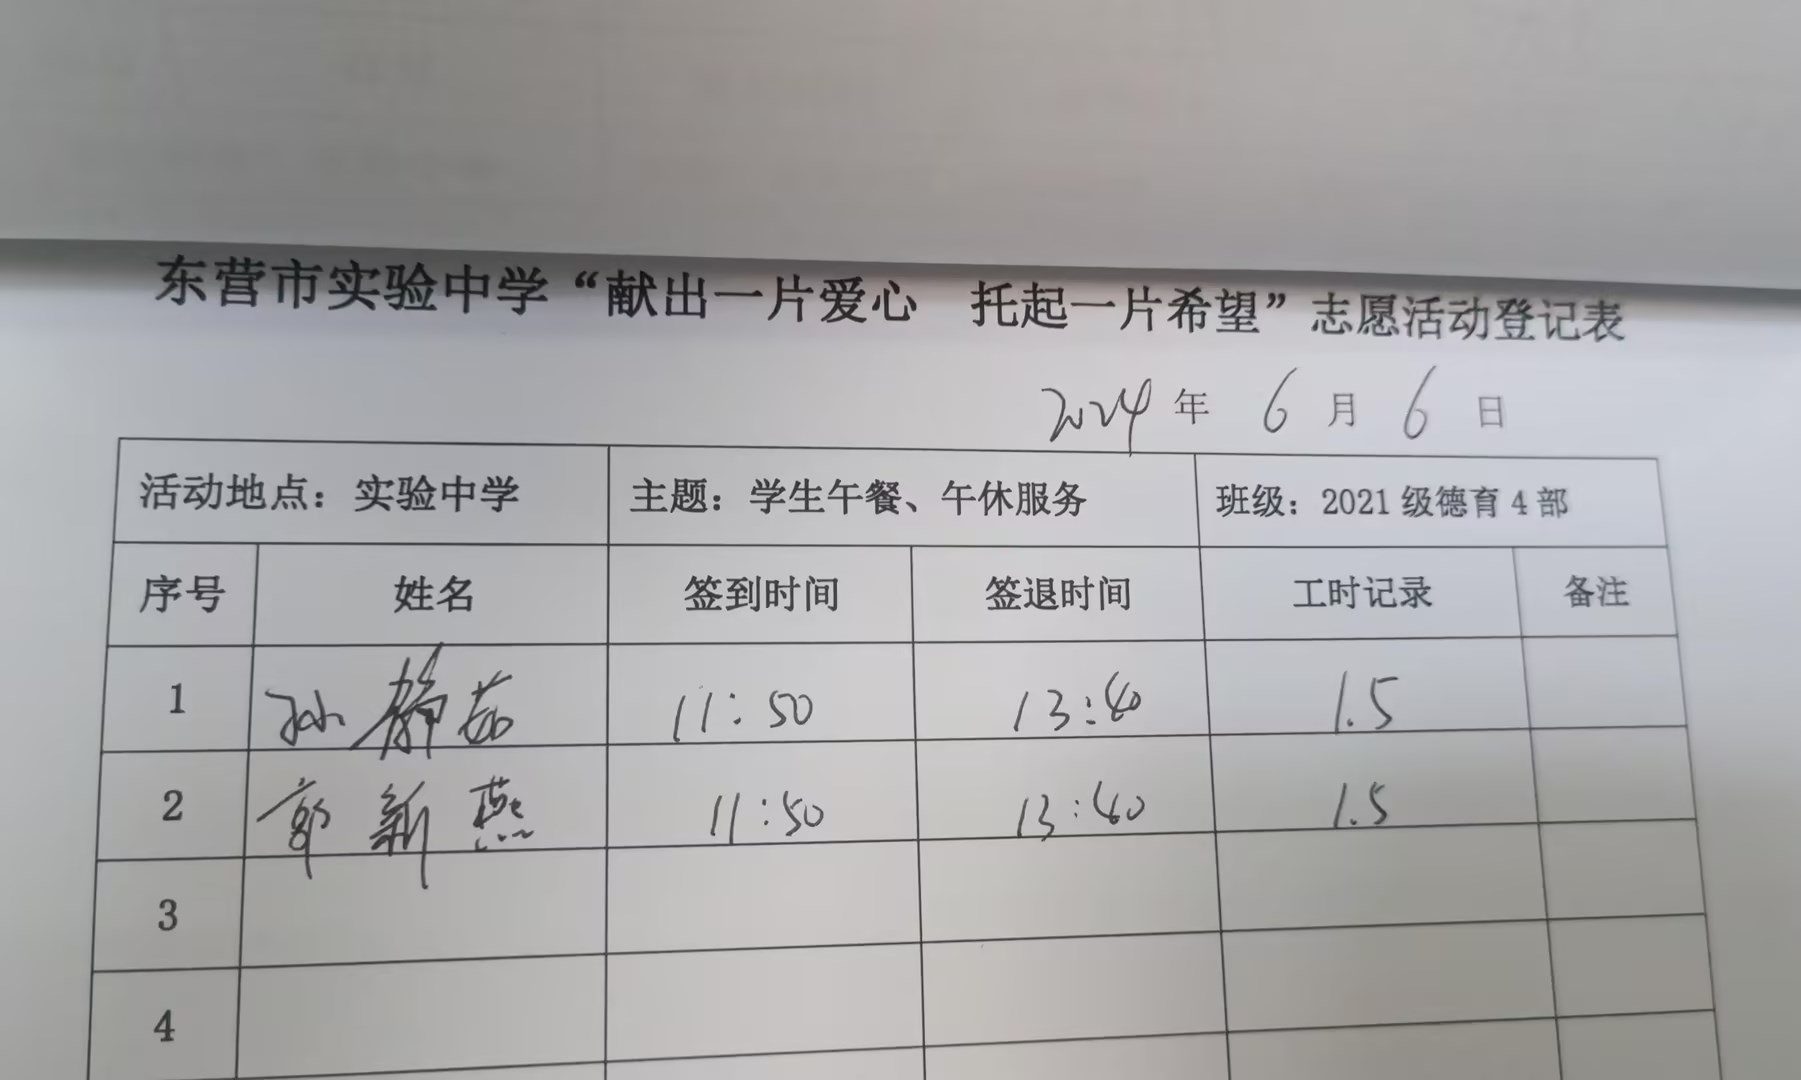 东营市实验中学“献出一片爱心 托起一片希望”志愿活动登记表
2024年 6月 6日
活动地点：实验中学 主题：学生午餐、午休服务 班级：2021级德育4部
序号 姓名 签到时间 签退时间 工时记录 备注
1 孙静茹 11:50 13:40 1.5
2 郭新燕 11:50 13:40 1.5
3
4